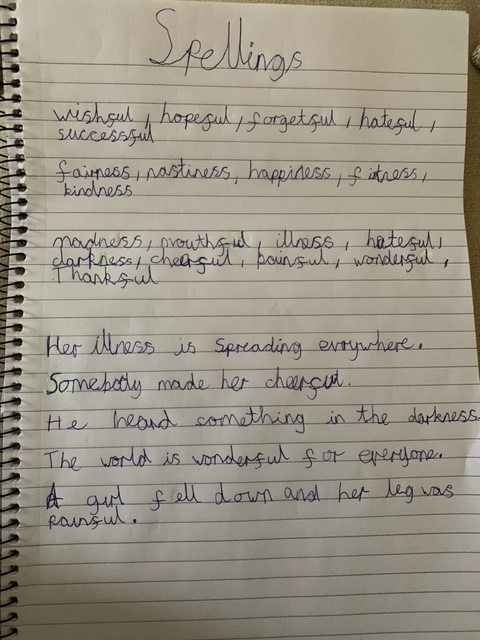 Spellings
wishful, hopeful, forgetful, hateful,
successful
fairness, nastiness, happiness, fitness,
kindness
madness, mouthful, illness, hateful,
darkness, cheerful, painful, wonderful,
Thankful
Her illness is spreading evrywhere.
Somebody made her cheerful.
He heard something in the darkness.
The world is wonderful for everyone.
A girl fell down and her leg was
painful.